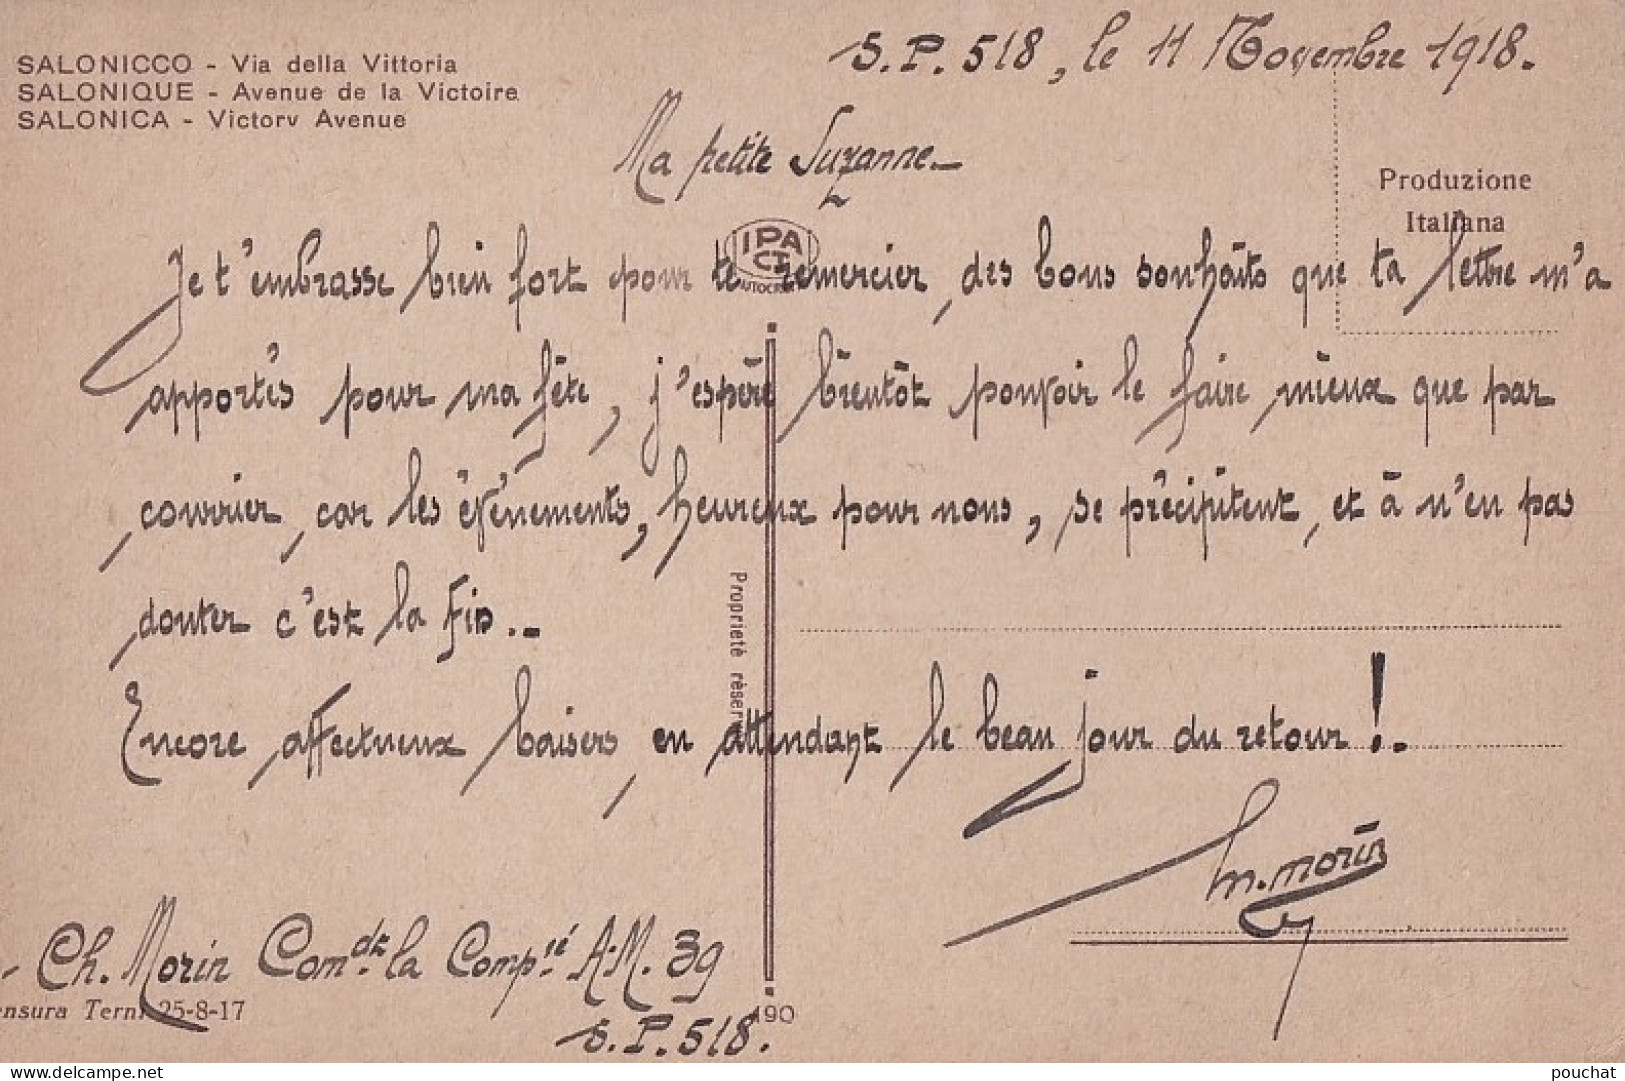 S.P. 518, le 11 Novembre 1918.
SALONICCO - Via della Vittoria
SALONIQUE - Avenue de la Victoire
SALONICA - Victory Avenue
Ma petite Suzanne
Produzione
Italiana
IPA CT
AUTOCROM
Je t'embrasse bien fort pour te remercier des bons souhaits que ta lettre m'a
apportés pour ma fête, j'espère bientôt pouvoir le faire mieux que par
courrier, car les évènements, heureux pour nous, se précipitent, et à n'en pas
douter c'est la fin.
Propriété réserv
Encore affectueux baisers, en attendant le beau jour du retour!
M. Morin
Ch. Morin Comdt la Compie A.M. 39
S.P. 518.
ensura Terni 25-8-17
190
delcampe.net
pouchat